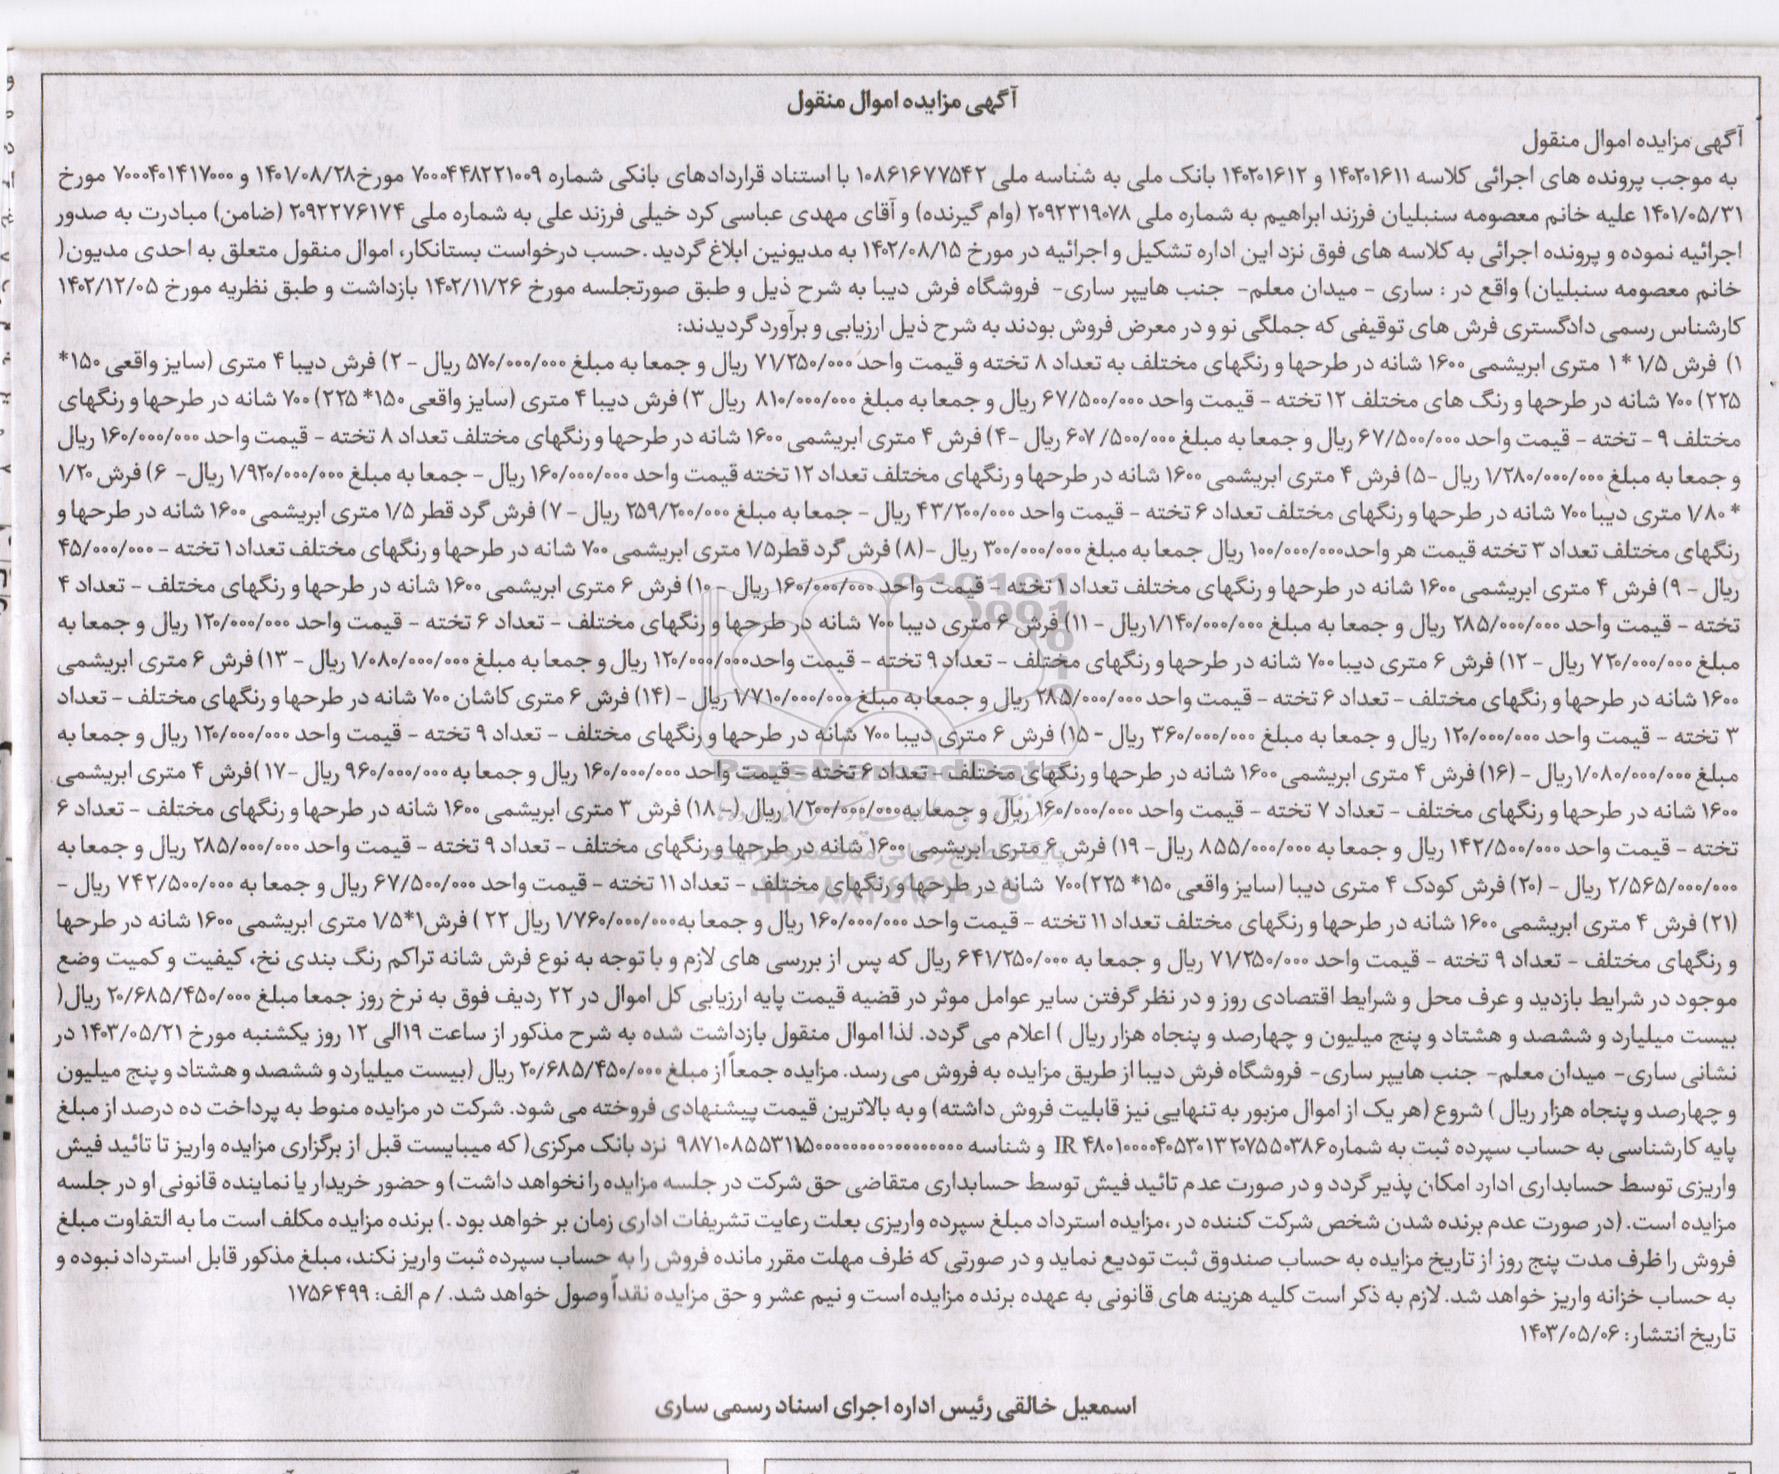 آگهی مزایده اموال منقول
آگهی مزایده اموال منقول
به موجب پرونده های اجرائی کلاسه ۱۴۰۲۰۱۶۱۱ و ۱۴۰۲۰۱۶۱۲ بانک ملی به شناسه ملی ۱۰۸۶۱۶۷۷۵۴۲ با استناد قراردادهای بانکی شماره ۷۰۰۰۴۴۸۲۲۱۰۰۹ مورخ۱۴۰۱/۰۸/۲۸ و ۷۰۰۰۴۰۱۴۱۷۰۰۰ مورخ
۱۴۰۱/۰۵/۳۱ علیه خانم معصومه سنبلیان فرزند ابراهیم به شماره ملی ۲۰۹۲۳۱۹۰۷۸ (وام گیرنده) و آقای مهدی عباسی کرد خیلی فرزند علی به شماره ملی ۲۰۹۲۲۷۶۱۷۴ (ضامن) مبادرت به صدور
اجرائیه نموده و پرونده اجرائی به کلاسه های فوق نزد این اداره تشکیل و اجرائیه در مورخ ۱۴۰۲/۰۸/۱۵ به مدیونین ابلاغ گردید .حسب درخواست بستانکار، اموال منقول متعلق به احدی مدیون(
خانم معصومه سنبلیان) واقع در : ساری - میدان معلم- جنب هایپر ساری- فروشگاه فرش دیبا به شرح ذیل و طبق صورتجلسه مورخ ۱۴۰۲/۱۱/۲۶ بازداشت و طبق نظریه مورخ ۱۴۰۲/۱۲/۰۵
کارشناس رسمی دادگستری فرش های توقیفی که جملگی نو و در معرض فروش بودند به شرح ذیل ارزیابی و برآورد گردیدند:
۱) فرش ۱/۵ * ۱ متری ابریشمی ۱۶۰۰ شانه در طرحها و رنگهای مختلف به تعداد ۸ تخته و قیمت واحد ۷۱/۲۵۰/۰۰۰ ریال و جمعا به مبلغ ۵۷۰/۰۰۰/۰۰۰ ریال - ۲) فرش دیبا ۴ متری (سایز واقعی ۱۵۰*
۲۲۵) ۷۰۰ شانه در طرحها و رنگ های مختلف ۱۲ تخته - قیمت واحد ۶۷/۵۰۰/۰۰۰ ریال و جمعا به مبلغ ۸۱۰/۰۰۰/۰۰۰ ریال ۳) فرش دیبا ۴ متری (سایز واقعی ۱۵۰* ۲۲۵) ۷۰۰ شانه در طرحها و رنگهای
مختلف ۹ - تخته - قیمت واحد ۶۷/۵۰۰/۰۰۰ ریال و جمعا به مبلغ ۵۰۰/۰۰۰/ ۶۰۷ ریال -۴) فرش ۴ متری ابریشمی ۱۶۰۰ شانه در طرحها و رنگهای مختلف تعداد ۸ تخته - قیمت واحد ۱۶۰/۰۰۰/۰۰۰ ریال
و جمعا به مبلغ ۱/۲۸۰/۰۰۰/۰۰۰ ریال -۵) فرش ۴ متری ابریشمی ۱۶۰۰ شانه در طرحها و رنگهای مختلف تعداد ۱۲ تخته قیمت واحد ۱۶۰/۰۰۰/۰۰۰ ریال - جمعا به مبلغ ۱/۹۲۰/۰۰۰/۰۰۰ ریال- ۶) فرش ۱/۲۰
* ۱/۸۰ متری دیبا ۷۰۰ شانه در طرحها و رنگهای مختلف تعداد ۶ تخته - قیمت واحد ۴۳/۲۰۰/۰۰۰ ریال - جمعا به مبلغ ۲۵۹/۲۰۰/۰۰۰ ریال - ۷) فرش گرد قطر ۱/۵ متری ابریشمی ۱۶۰۰ شانه در طرحها و
رنگهای مختلف تعداد ۳ تخته قیمت هر واحد۱۰۰/۰۰۰/۰۰۰ ریال جمعا به مبلغ ۳۰۰/۰۰۰/۰۰۰ ریال -(۸) فرش گرد قطر۱/۵ متری ابریشمی ۷۰۰ شانه در طرحها و رنگهای مختلف تعداد۱ تخته - ۴۵/۰۰۰/۰۰۰
ریال - ۹) فرش ۴ متری ابریشمی ۱۶۰۰ شانه در طرحها و رنگهای مختلف تعداد ۱ تخته - قیمت واحد ۱۶۰/۰۰۰/۰۰۰ ریال - ۱۰) فرش ۶ متری ابریشمی ۱۶۰۰ شانه در طرحها و رنگهای مختلف - تعداد ۴
تخته - قیمت واحد ۲۸۵/۰۰۰/۰۰۰ ریال و جمعا به مبلغ ۱/۱۴۰/۰۰۰/۰۰۰ریال - ۱۱) فرش ۶ متری دیبا ۷۰۰ شانه در طرحها و رنگهای مختلف - تعداد ۶ تخته - قیمت واحد ۱۲۰/۰۰۰/۰۰۰ ریال و جمعا به
مبلغ ۷۲۰/۰۰۰/۰۰۰ ریال - ۱۲) فرش ۶ متری دیبا ۷۰۰ شانه در طرحها و رنگهای مختلف - تعداد ۹ تخته - قیمت واحد۱۲۰/۰۰۰/۰۰۰ ریال و جمعا به مبلغ ۱/۰۸۰/۰۰۰/۰۰۰ ریال - ۱۳) فرش ۶ متری ابریشمی
۱۶۰۰ شانه در طرحها و رنگهای مختلف - تعداد ۶ تخته - قیمت واحد ۲۸۵/۰۰۰/۰۰۰ ریال و جمعا به مبلغ ۱/۷۱۰/۰۰۰/۰۰۰ ریال - (۱۴) فرش ۶ متری کاشان ۷۰۰ شانه در طرحها و رنگهای مختلف - تعداد
۳ تخته - قیمت واحد ۱۲۰/۰۰۰/۰۰۰ ریال و جمعا به مبلغ ۳۶۰/۰۰۰/۰۰۰ ریال - ۱۵) فرش ۶ متری دیبا ۷۰۰ شانه در طرحها و رنگهای مختلف - تعداد ۹ تخته - قیمت واحد ۱۲۰/۰۰۰/۰۰۰ ریال و جمعا به
مبلغ ۱/۰۸۰/۰۰۰/۰۰۰ریال - (۱۶) فرش ۴ متری ابریشمی ۱۶۰۰ شانه در طرحها و رنگهای مختلف - تعداد ۶ تخته - قیمت واحد ۱۶۰/۰۰۰/۰۰۰ ریال و جمعا به ۹۶۰/۰۰۰/۰۰۰ ریال -۱۷ )فرش ۴ متری ابریشمی
۱۶۰۰ شانه در طرحها و رنگهای مختلف - تعداد ۷ تخته - قیمت واحد ۱۶۰/۰۰۰/۰۰۰ ریال و جمعا به۱/۲۰۰/۰۰۰/۰۰۰ ریال (- ۱۸) فرش ۳ متری ابریشمی ۱۶۰۰ شانه در طرحها و رنگهای مختلف - تعداد ۶
تخته - قیمت واحد ۱۴۲/۵۰۰/۰۰۰ ریال و جمعا به ۸۵۵/۰۰۰/۰۰۰ ریال- ۱۹) فرش ۶ متری ابریشمی ۱۶۰۰ شانه در طرحها و رنگهای مختلف - تعداد ۹ تخته - قیمت واحد ۲۸۵/۰۰۰/۰۰۰ ریال و جمعا به
۲/۵۶۵/۰۰۰/۰۰۰ ریال - (۲۰) فرش کودک ۴ متری دیبا (سایز واقعی ۱۵۰* ۲۲۵)۷۰۰ شانه در طرحها و رنگهای مختلف - تعداد ۱۱ تخته - قیمت واحد ۶۷/۵۰۰/۰۰۰ ریال و جمعا به ۷۴۲/۵۰۰/۰۰۰ ریال -
(۲۱) فرش ۴ متری ابریشمی ۱۶۰۰ شانه در طرحها و رنگهای مختلف تعداد ۱۱ تخته - قیمت واحد ۱۶۰/۰۰۰/۰۰۰ ریال و جمعا به۱/۷۶۰/۰۰۰/۰۰۰ ریال ۲۲ ) فرش۱*۱/۵ متری ابریشمی ۱۶۰۰ شانه در طرحها
و رنگهای مختلف - تعداد ۹ تخته - قیمت واحد ۷۱/۲۵۰/۰۰۰ ریال و جمعا به ۶۴۱/۲۵۰/۰۰۰ ریال که پس از بررسی های لازم و با توجه به نوع فرش شانه تراکم رنگ بندی نخ، کیفیت و کمیت وضع
موجود در شرایط بازدید و عرف محل و شرایط اقتصادی روز و در نظر گرفتن سایر عوامل موثر در قضیه قیمت پایه ارزیابی کل اموال در ۲۲ ردیف فوق به نرخ روز جمعا مبلغ ۲۰/۶۸۵/۴۵۰/۰۰۰ ریال(
بیست میلیارد و ششصد و هشتاد و پنج میلیون و چهارصد و پنجاه هزار ریال ) اعلام می گردد. لذا اموال منقول بازداشت شده به شرح مذکور از ساعت ۱۹الی ۱۲ روز یکشنبه مورخ ۱۴۰۳/۰۵/۲۱ در
نشانی ساری- میدان معلم- جنب هایپر ساری- فروشگاه فرش دیبا از طریق مزایده به فروش می رسد. مزایده جمعاً از مبلغ ۲۰/۶۸۵/۴۵۰/۰۰۰ ریال (بیست میلیارد و ششصد و هشتاد و پنج میلیون
و چهارصد و پنجاه هزار ریال ) شروع (هر یک از اموال مزبور به تنهایی نیز قابلیت فروش داشته) و به بالاترین قیمت پیشنهادی فروخته می شود. شرکت در مزایده منوط به پرداخت ده درصد از مبلغ
پایه کارشناسی به حساب سپرده ثبت به شماره و شناسه نزد بانک مرکزی( که میبایست قبل از برگزاری مزایده واریز تا تائید فیش
واریزی توسط حسابداری اداره امکان پذیر گردد و در صورت عدم تائید فیش توسط حسابداری متقاضی حق شرکت در جلسه مزایده را نخواهد داشت) و حضور خریدار یا نماینده قانونی او در جلسه
مزایده است. (در صورت عدم برنده شدن شخص شرکت کننده در ،مزایده استرداد مبلغ سپرده واریزی بعلت رعایت تشریفات اداری زمان بر خواهد بود .) برنده مزایده مکلف است ما به التفاوت مبلغ
فروش را ظرف مدت پنج روز از تاریخ مزایده به حساب صندوق ثبت تودیع نماید و در صورتی که ظرف مهلت مقرر مانده فروش را به حساب سپرده ثبت واریز نکند، مبلغ مذکور قابل استرداد نبوده و
به حساب خزانه واریز خواهد شد. لازم به ذکر است کلیه هزینه های قانونی به عهده برنده مزایده است و نیم عشر و حق مزایده نقداً وصول خواهد شد. / م الف: ۱۷۵۶۴۹۹
تاریخ انتشار: ۱۴۰۳/۰۵/۰۶
اسمعیل خالقی رئیس اداره اجرای اسناد رسمی ساری